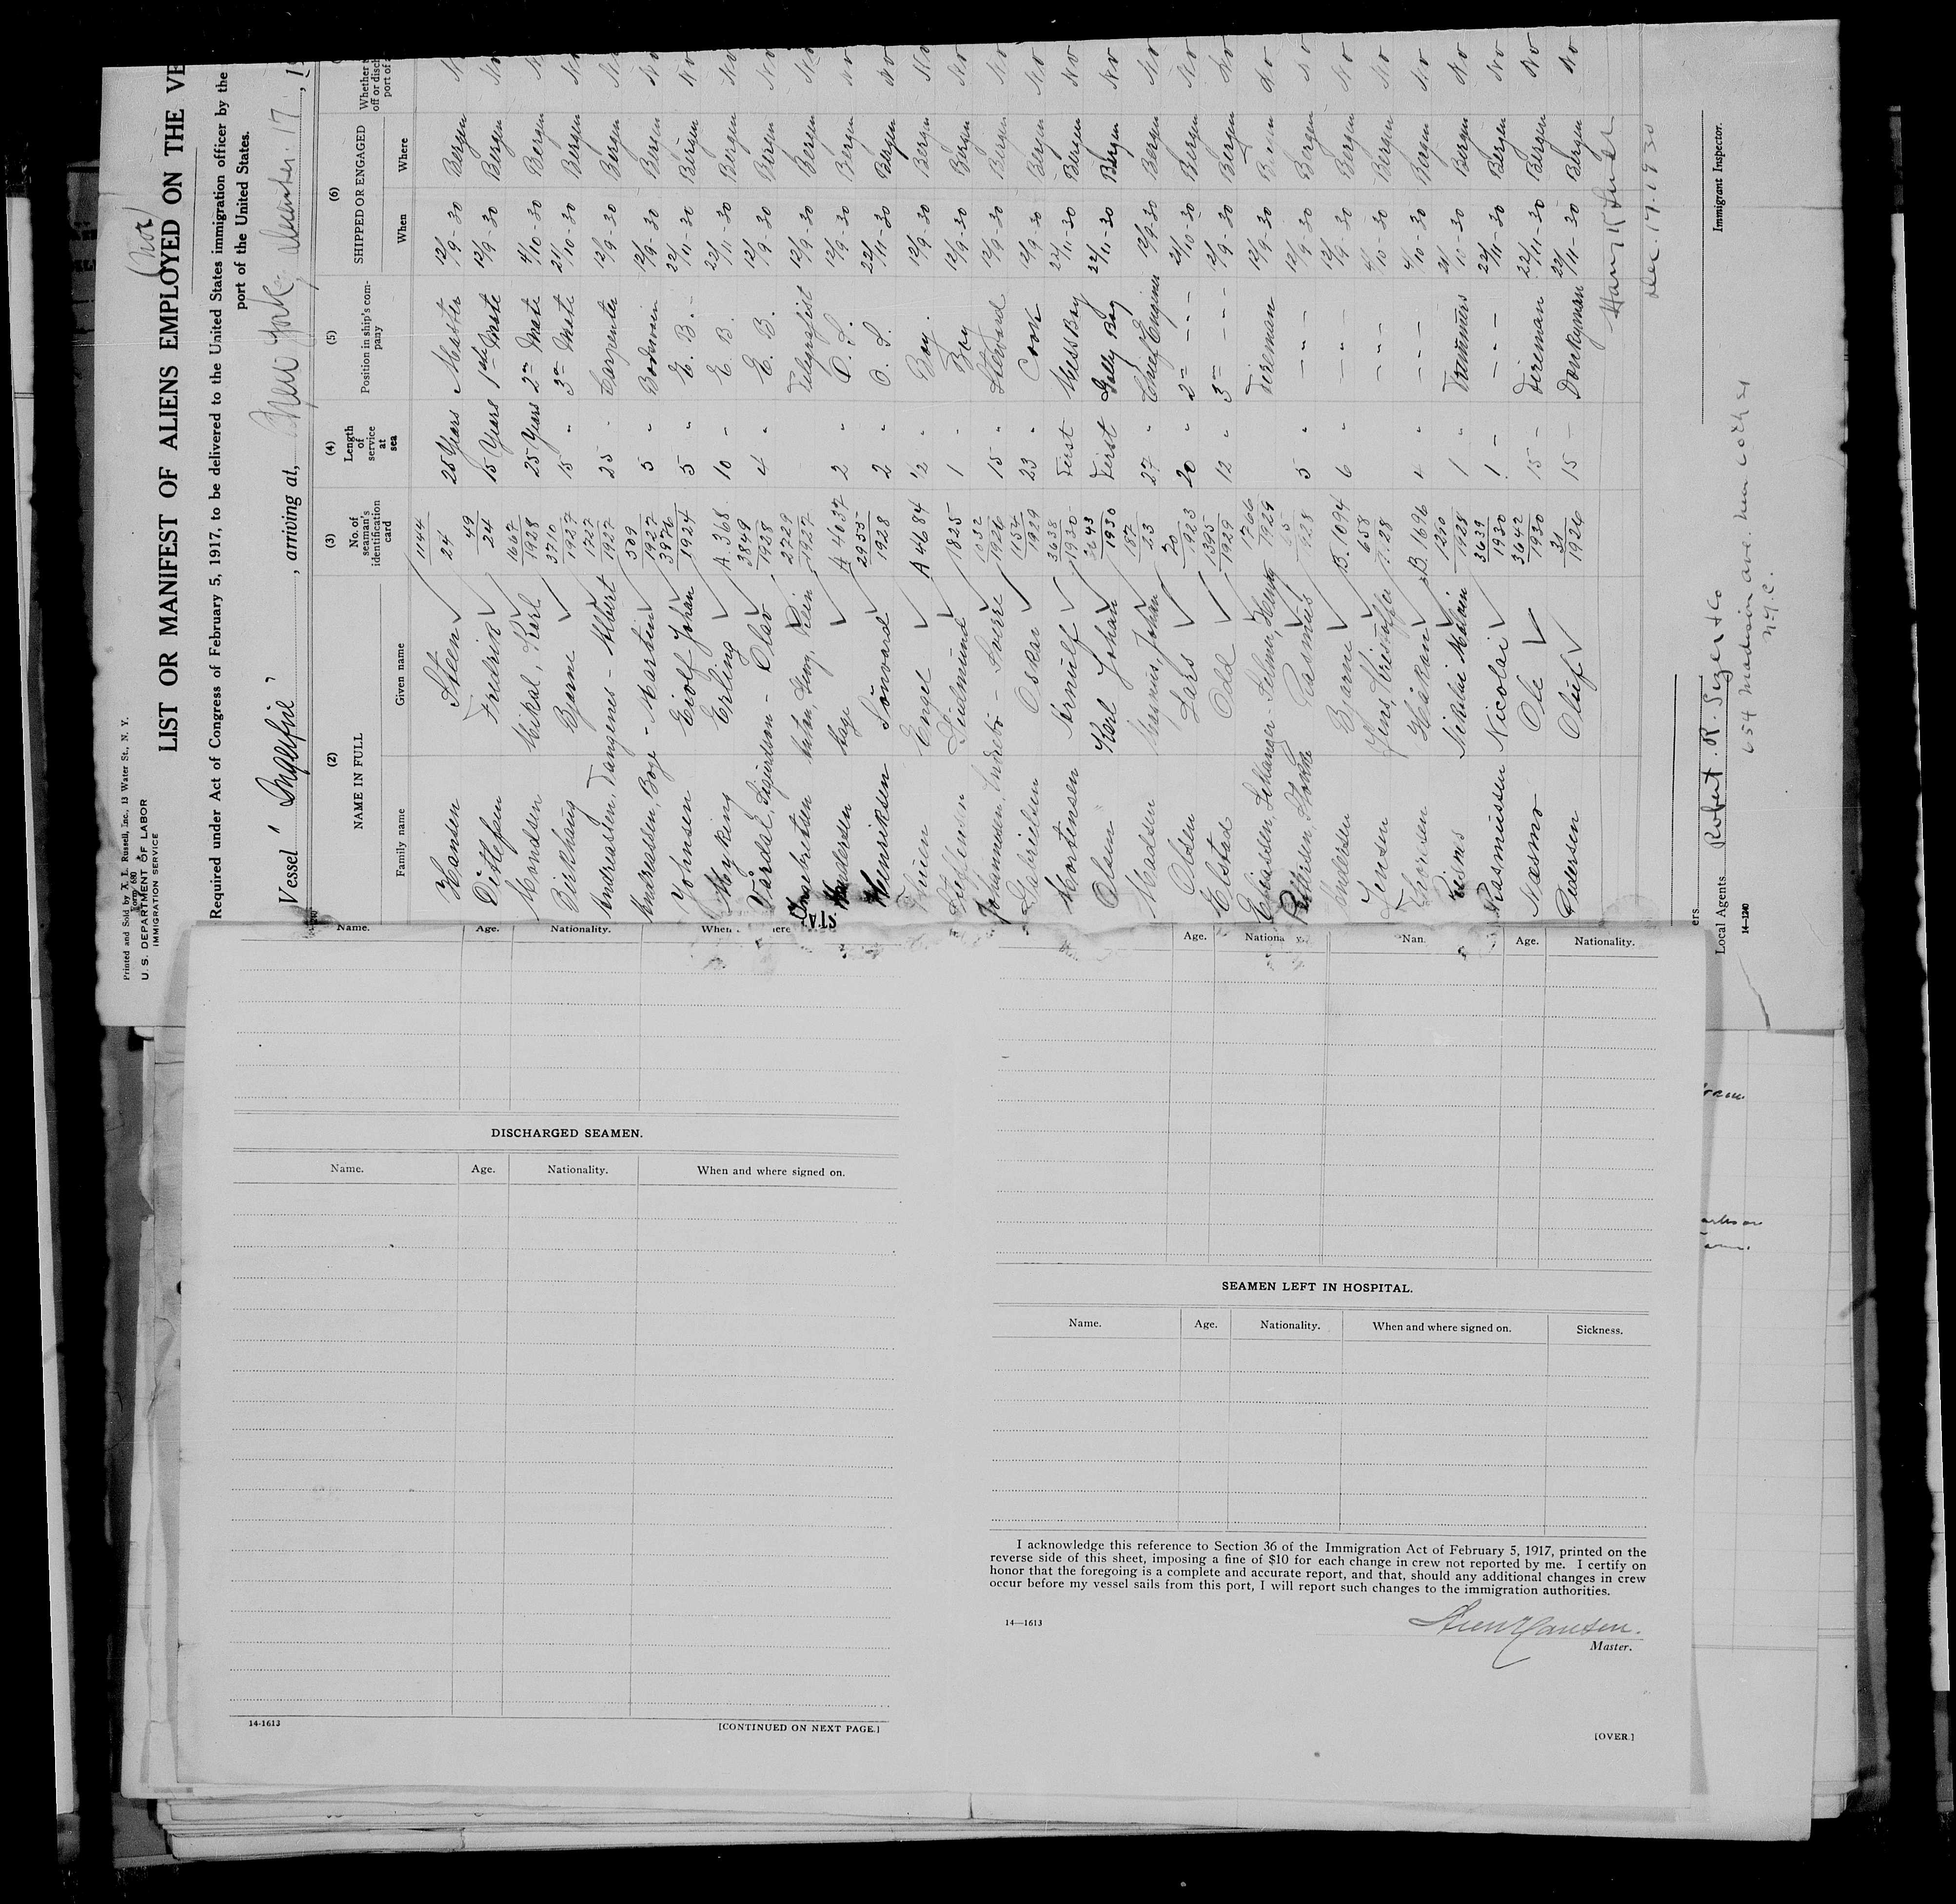 Printed and Sold by X. L. Russell, Inc., 13 Water St., N. Y.
Form 680
U. S. DEPARTMENT OF LABOR
IMMIGRATION SERVICE
LIST OR MANIFEST OF ALIENS EMPLOYED ON THE VE
Required under Act of Congress of February 5, 1917, to be delivered to the United States immigration officer by the
port of the United States.
Vessel " , arriving at, New York, December 17, 19
(2) (3) (4) (5) (6)
NAME IN FULL No. of seaman's identification card Length of service at sea Position in ship's company SHIPPED OR ENGAGED Whether
Family name Given name When Where
Hansen Steen 1144/24 25 Years Master 12/9-30 Bergen No
Ditlefsen Fredrik 49/24 15 Years 1st Mate 12/9-30 Bergen No
Mondsen Mikal, Karl 1667/1928 25 Years 2nd Mate 4/10-30 Bergen No
Birkhaug Bjarne 3710/1927 15 " 3rd Mate 21/10-30 Bergen No
Andreasen, Tangenes - Albert 1727/1927 25 - Carpenter 12/9-30 Bergen No
Andreassen, Boge - Martin 509/1927 5 " Boatswain 12/9-30 Bergen No
Johnsen Eiolf Johan 3976/1924 5 " E. B. - 22/11-30 Bergen No
Myking Erling A 368 10 - E. B. 22/11-30 Bergen No
Vårdal, Sigurdsen - Olav 3849/1928 4 " E. B. 12/9-30 Bergen No
Ingebretsen Rein 2729/1927 Telegrafist 12/9-30 Bergen No
Andersen Aage A 4037 2 " O. S. 12/9-30 Bergen No
Henriksen Sönvard 2955/1928 2 " O. S. 22/11-30 Bergen No
Engel A 4684 1/2 " Boy. 12/9-30 Bergen No
Steffensen Gudmund 1825 1 - Boy 12/9-30 Bergen No
Johannesen, - Sverre 1032/1926 15 " Steward 12/9-30 Bergen No
Gabrielsen Oskar 1154/1929 23 " Cook 12/9-30 Bergen No
Mortensen Arnulf 3638/1930 First Mess Boy 22/11-30 Bergen No
Olsen Karl Johan 3643/1930 First Gally Boy 22/11-30 Bergen No
Madsen Magnus, Johan 187/23 27 " Chief Engineer 12/9-30 Bergen No
Olsen Lars 70/1923 20 " 2nd - - - 21/10-30 Bergen No
Elstad Odd 1395/1929 12 " 3rd - - - 12/9-30 Bergen No
Eliassen, 1766/1929 Fireman 12/9-30 No
Pettersen, Rasmus 5 " - " - 12/9-30 Bergen No
Andersen Bjarne B. 1094 6 " - " - 12/9-30 Bergen No
Jensen Jens, Kristoffer 658 4/10-30 Bergen No
Håkan B. 1696 4 " - - - 4/10-30 Bergen No
Nikolai 1260/1928 1 " Trimmers 21/10-30 Bergen No
Rasmussen Nicolai 3639/1930 1 - - - - 22/11-30 Bergen No
Næsmo Ole 3642/1930 15 - Fireman 22/11-30 Bergen No
Pedersen Oluf 31/1926 15 - Donkeyman 22/11-30 Bergen No
Dec. 17. 1930
Immigrant Inspector.
ers
Local Agents Robert R. Sizer & Co
654 Madison ave. New York City
N.Y.C.
14—1240
Name. Age. Nationality. When
DISCHARGED SEAMEN.
Name. Age. Nationality. When and where signed on.
14-1613 [CONTINUED ON NEXT PAGE.]
Age. Nationality. Nam Age. Nationality.
SEAMEN LEFT IN HOSPITAL.
Name. Age. Nationality. When and where signed on. Sickness.
I acknowledge this reference to Section 36 of the Immigration Act of February 5, 1917, printed on the
reverse side of this sheet, imposing a fine of $10 for each change in crew not reported by me. I certify on
honor that the foregoing is a complete and accurate report, and that, should any additional changes in crew
occur before my vessel sails from this port, I will report such changes to the immigration authorities.
14—1613
Steen Hansen.
Master.
[OVER.]